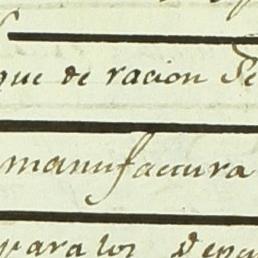 que de racion Se
manufactura
para los